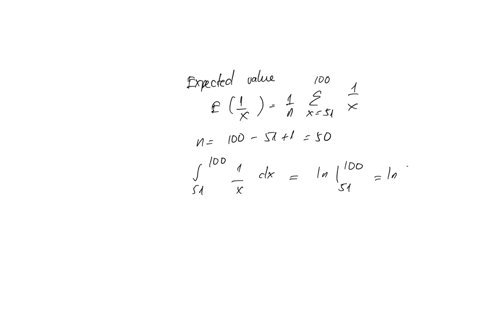 Expected value
E (1/x) = 1/n Σ_{x=51}^{100} 1/x
n= 100 - 51 +1 = 50
∫_{51}^{100} 1/x dx = ln |_{51}^{100} = ln